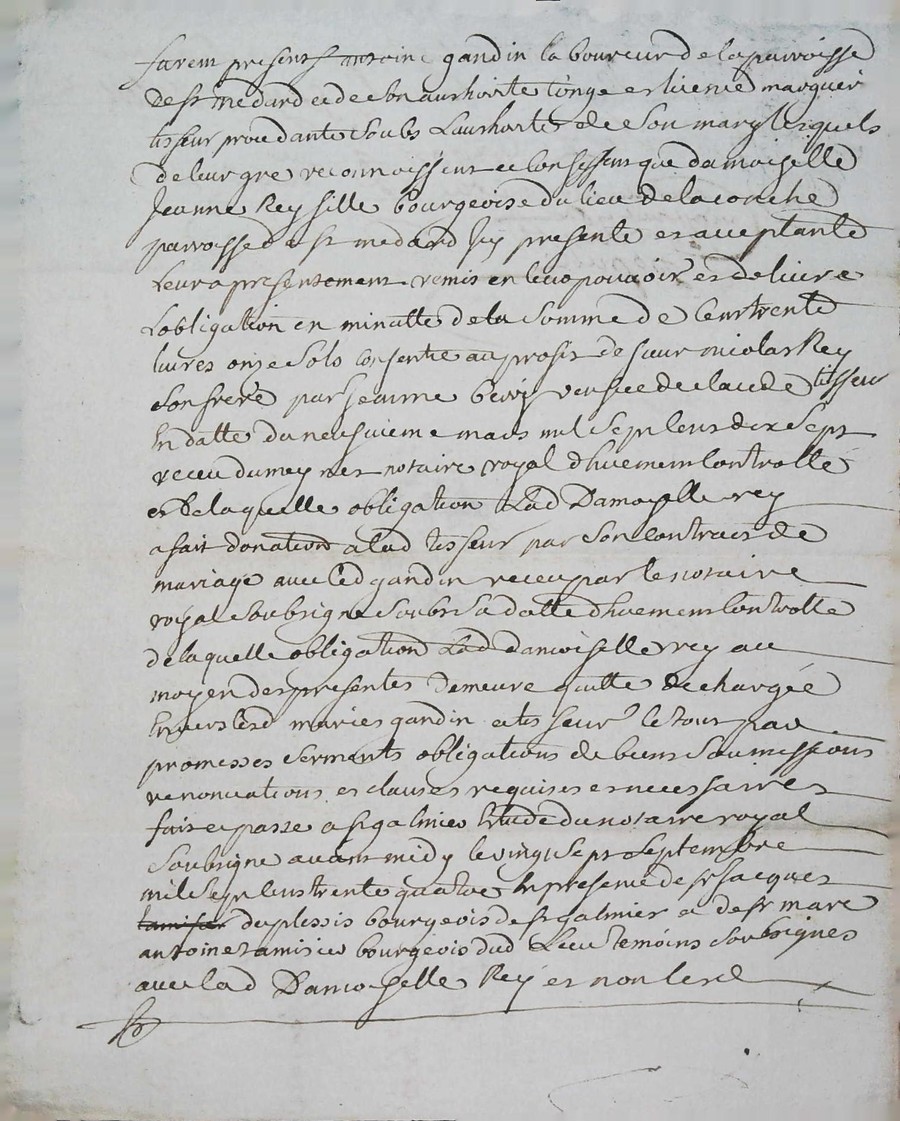 furent presents antoine gandin laboureur de la parroisse
de st medard et de son authorité benoite et himie marguerite
tisseur procedante soubs lauthorité de son mary lesquels
de leur gre reconnoissent et confessent que damoiselle
Jeanne Rey fille bourgeoise du lieu de laconche
parroisse de st medard Icy presente et acceptante
leur a presentement remis en leur pouvoir et delivré
lobligation en minutte de la somme de cent trente
livres onze sols consentie au profit de sieur nicolas Rey
son frere par Jeanne veufve de claude tisseur
En datte du neufvieme mars mil sept cent dix sept
receu dumeynet notaire royal dhuement controllé
et de laquelle obligation lad Damoyselle rey
a fait donation alad tisseur par son contract de
mariage avec led gandin receu par le notaire
royal soubsigné soubs sa datte dhuement controllé
de laquelle obligation lad damoiselle rey au
moyen des presentes demeure quitte dechargée
Envers lesd mariés gandin et tisseur le tout par
promesses serments obligations de biens soumissions
renonciations et clauses requises et necessaires
fait et passé a st galmier Etude du notaire royal
soubsigné avant midy le vingt sept septembre
mil sept cent trente quatre En presence de sr Jacques
duplessis bourgeois de st galmier et de sr marc
antoine tamisier bourgeois dud Lieu temoins soubsignés
avec lad Damoyselle Rey et non lesd